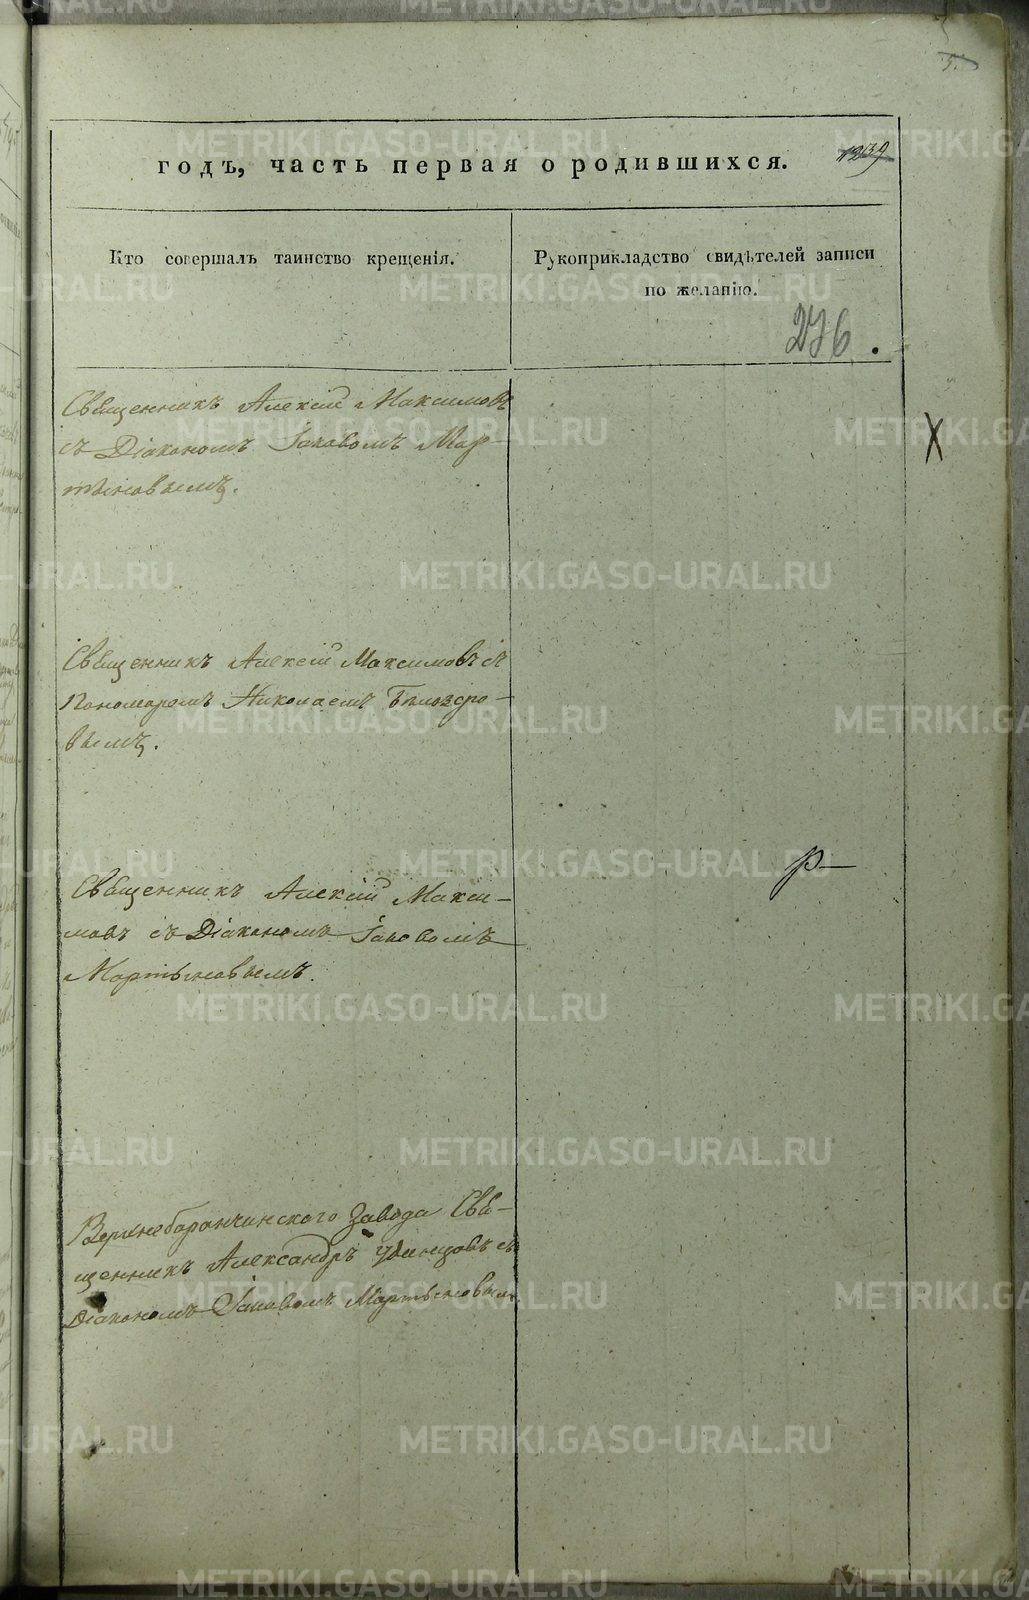 5.
годъ, часть первая о родившихся.
Кто совершалъ таинство крещенія.
Рукоприкладство свидѣтелей записи
по желанію.
276.
Священникъ Алексій Максимовъ
съ Діакономъ Іаковомъ Мар-
тыновымъ.
Священникъ Алексій Максимовъ съ
Пономаремъ Николаемъ Бѣлозеро-
вымъ.
Священникъ Алексій Макси-
мовъ съ Діакономъ Іаковомъ
Мартыновымъ.
Верхнебаранчинскаго Завода Свя-
щенникъ Александръ съ
Діакономъ Іаковомъ Мартыновымъ
METRIKI.GASO-URAL.RU